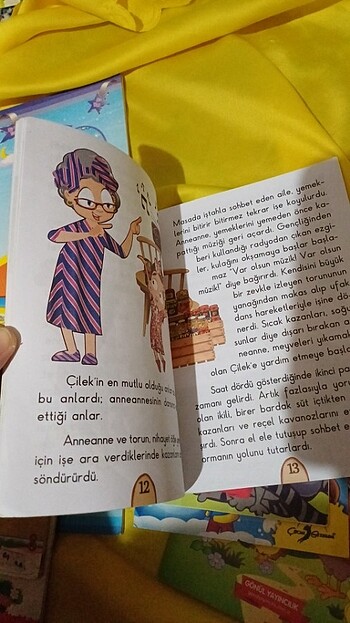 Çilek'in en mutlu olduğu
bu anlardı; anneannesinin
ettiği anlar.
Anneanne ve torun, nihayet
için işe ara verdiklerinde
söndürürdü.
12
Masada iştahla sohbet eden aile, yemek-
lerini bitirir bitirmez tekrar işe koyulurdu.
Anneanne, yemeklerini yemeden önce ka-
pattığı müziği geri açardı. Gençliğinden
beri kullandığı radyodan çıkan ezgi-
ler, kulağını okşamaya başlar başla-
maz "Var olsun müzik! Var olsun
müzik!" diye bağırırdı. Kendisini büyük
bir zevkle izleyen torununun
yanağından makas alıp ufak
dans hareketleriyle işine dö-
nerdi. Sıcak kazanları, soğu
sunlar diye dışarı bırakan a
neanne, meyveleri yıkamak
olan Çilek'e yardım etmeye başla
Saat dördü gösterdiğinde ikinci
zamanı gelirdi. Artık fazlasıyla
olan ikili, birer bardak süt içtikten
kazanları ve reçel kavanozlarını
Sonra el ele tutuşup sohbet
ormanın yolunu tutarlardı.
13
GÖNÜL YAYINCILIK